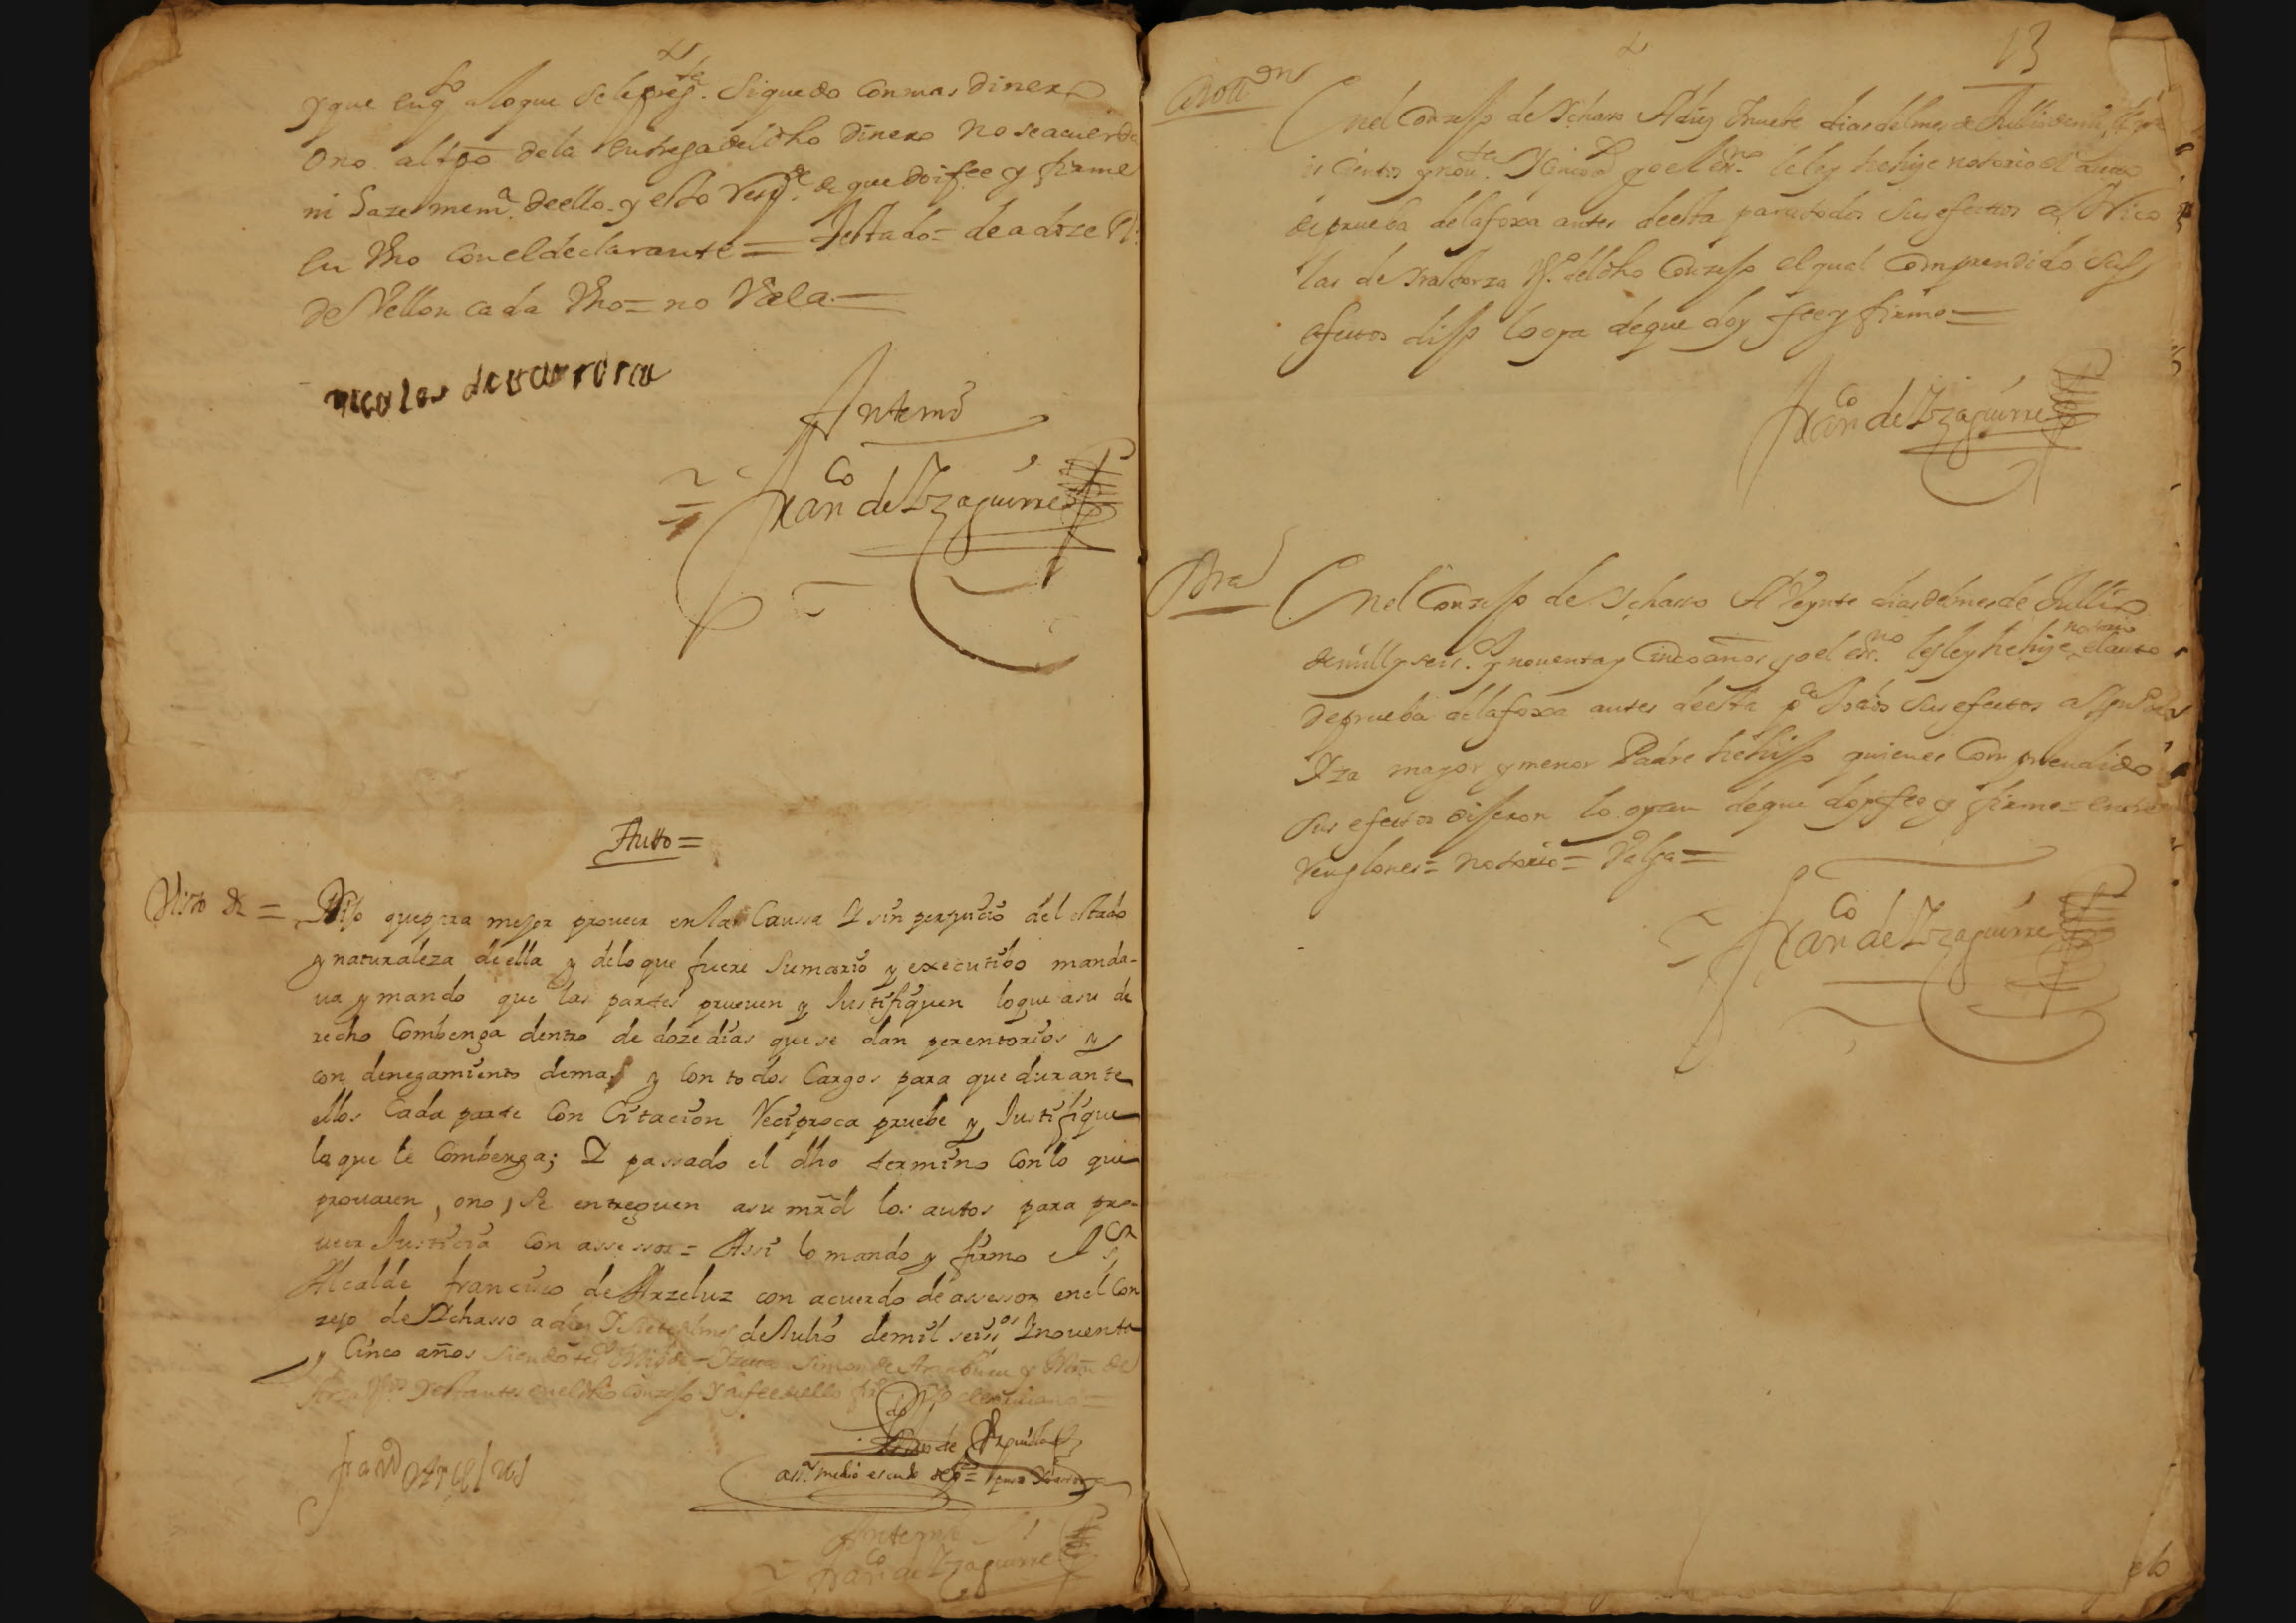 y que en q.to a lo que se le preg.ta si quedo con mas dinero
o no al tpo de la entrega del dho dinero no se acuerda
ni haze mem.a de ello y esto resp.de de que doi fee y firme
en vno con el declarante = testado = de a doze R.
de Vellon cada vno = no Vala =
nicolas de
Antemi
Fran.co de Yzaguirre
Autto =
Visto & = Dijo que para mejor proueer en la Caussa Y sin perjuicio del estado
y naturaleza de ella y de lo que fuere Sumario y executibo manda-
ua y mando que las partes prueuen y Justifiquen lo que a su de
recho Combenga dentro de doze dias que se dan perentorios y
con denegamiento de mas y con todos Cargos para que durante
ellos Cada parte Con Citacion Reciproca pruebe y Justifique
lo que le Combenga; Y passado el dho termino Con lo que
prouaren, o no, se entreguen a su mrd los autos para pro-
ueer Justicia con assessor = Assi lo mando y firmo el S.r
Alcalde francisco de Arzeluz con acuerdo de assessor en el Con
zejo de Ychasso a diez Y siete de Julio de mil seis.os Y nouenta
y Cinco años siendo tes.
en el dho Conzejo
Antemi
Fran.co de Yzaguirre
13
Noti.on
En el Conzejo de Ychasso A diez Y nueve dias del mes de Jullio de mill y
seiscientos y nou.ta Y Cinco a.s yo el es.no le ley he hize notorio el auto
de prueba de la foxa antes de esta para todos sus efectos a Nico
las de V.o del dho Conzejo el qual Comprendido sus
efectos disso lo oya de que doy fee y firmo =
Fran.co de Yzaguirre
Otra
En el Conzejo de Ychasso A Veynte dias del mes de Jullio
de mill y seis.os y nouenta y Cinco años yo el es.no les ley he hize notorio el auto
de prueba de la foxa antes de esta p.a todos sus efectos a
Yza mayor y menor Padre he hijo quienes Comprendido
sus efectos disseron lo oyan de que doy fee y firmo = entre
Renglones = notorio = Valga =
Fran.co de Yzaguirre